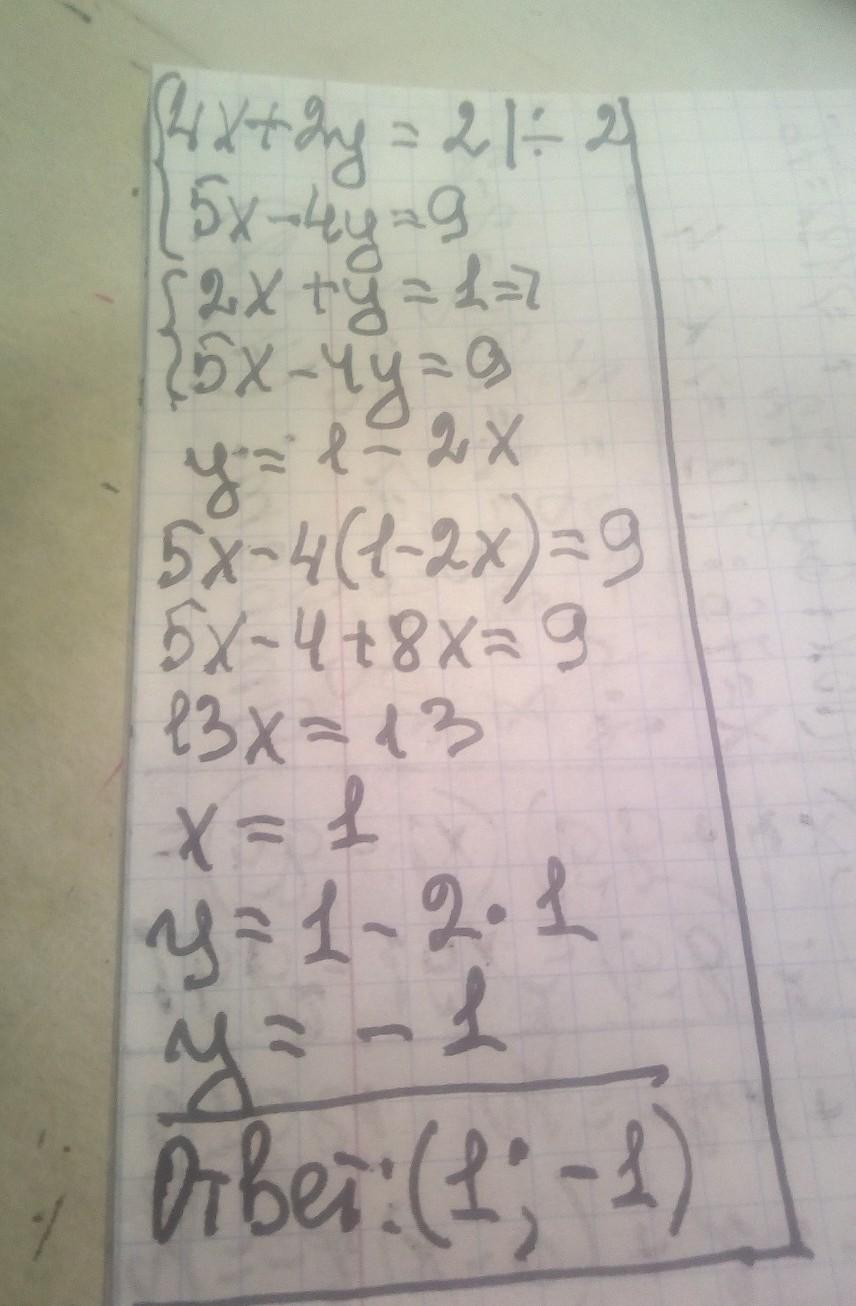 4x+2y=2|÷2
5x-4y=9
2x+y=1=>
5x-4y=9
y=1-2x
5x-4(1-2x)=9
5x-4+8x=9
13x=13
x=1
y=1-2·1
y=-1
Ответ:(1;-1)